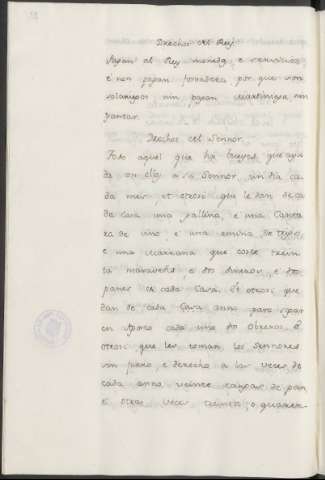 Drechos del Rey.
Pagan al Rey moneda e servicios
e non pagan fonsadera por que son
solariegos nin pagan martiniega nin
yantar.
Drechos del Sennor.
Todo aquel que há bueyes que ayu
da en cada a so Sennor, un dia ca
da mes et otrosi que le dan de ca
da casa una gallina, e una Canta
ra de vino e una emina de trigo
e una marrana que coste trein
ta maravedis e dos dineros, e dos
panes de cada Casa. Et otrosi que
dan de cada Casa anno para
en Aposto cada uno dos obreros. E
otrosi que les toman los Sennores
sin fuero, e derecho a las veces de
cada anno veinte cargas de pan
e otras veces treinta, o quaren-